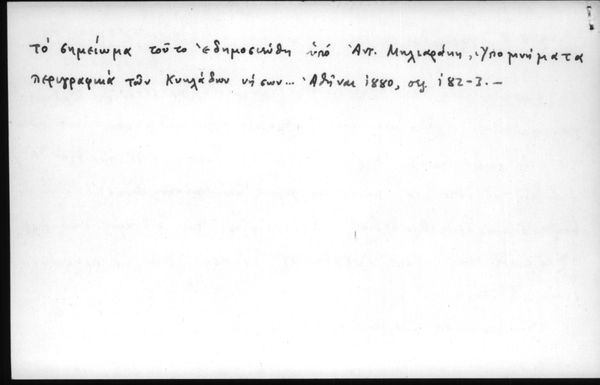 τό σημείωμα τοῦτο ἐδημοσιεύθη ὑπό Ἀντ. Μηλιαράκη, Ὑπομνήματα
περιγραφικά τῶν Κυκλάδων νήσων... Ἀθῆναι 1880, σελ. 182-3.-